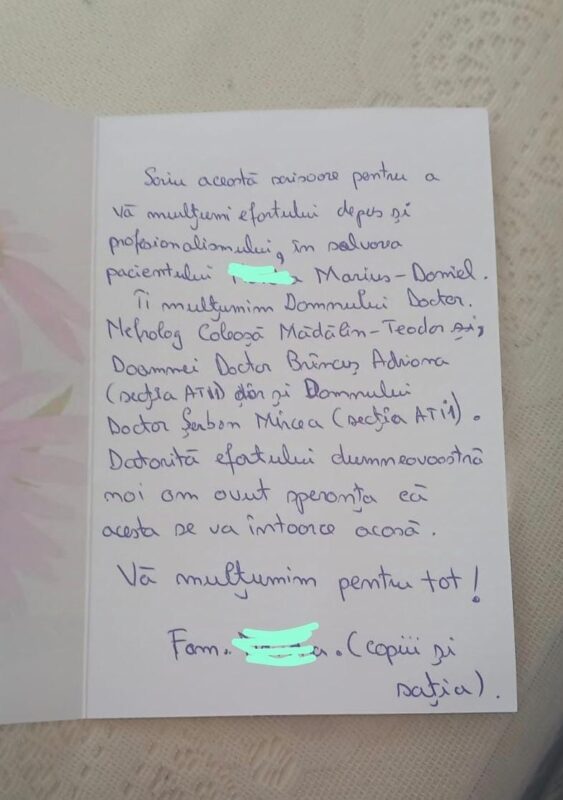 Scriu această scrisoare pentru a
vă mulțumi efortului depus și
profesionalismului, în salvarea
pacientului Marius-Daniel.
Îi mulțumim Domnului Doctor.
Nefrolog Coleașă Mădălin-Teodor și,
Doamnei Doctor Brîncuș Adriana
(secția ATI1) dar și Domnului
Doctor Șerban Mircea (secția ATI1).
Datorită efortului dumneavoastră
noi am avut speranța că
acesta se va întoarce acasă.
Vă mulțumim pentru tot!
Fam. (copiii și
soția).